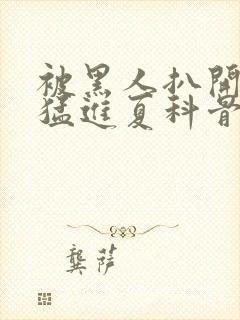 被黑人扒開
猛進夏科骨
龔薩